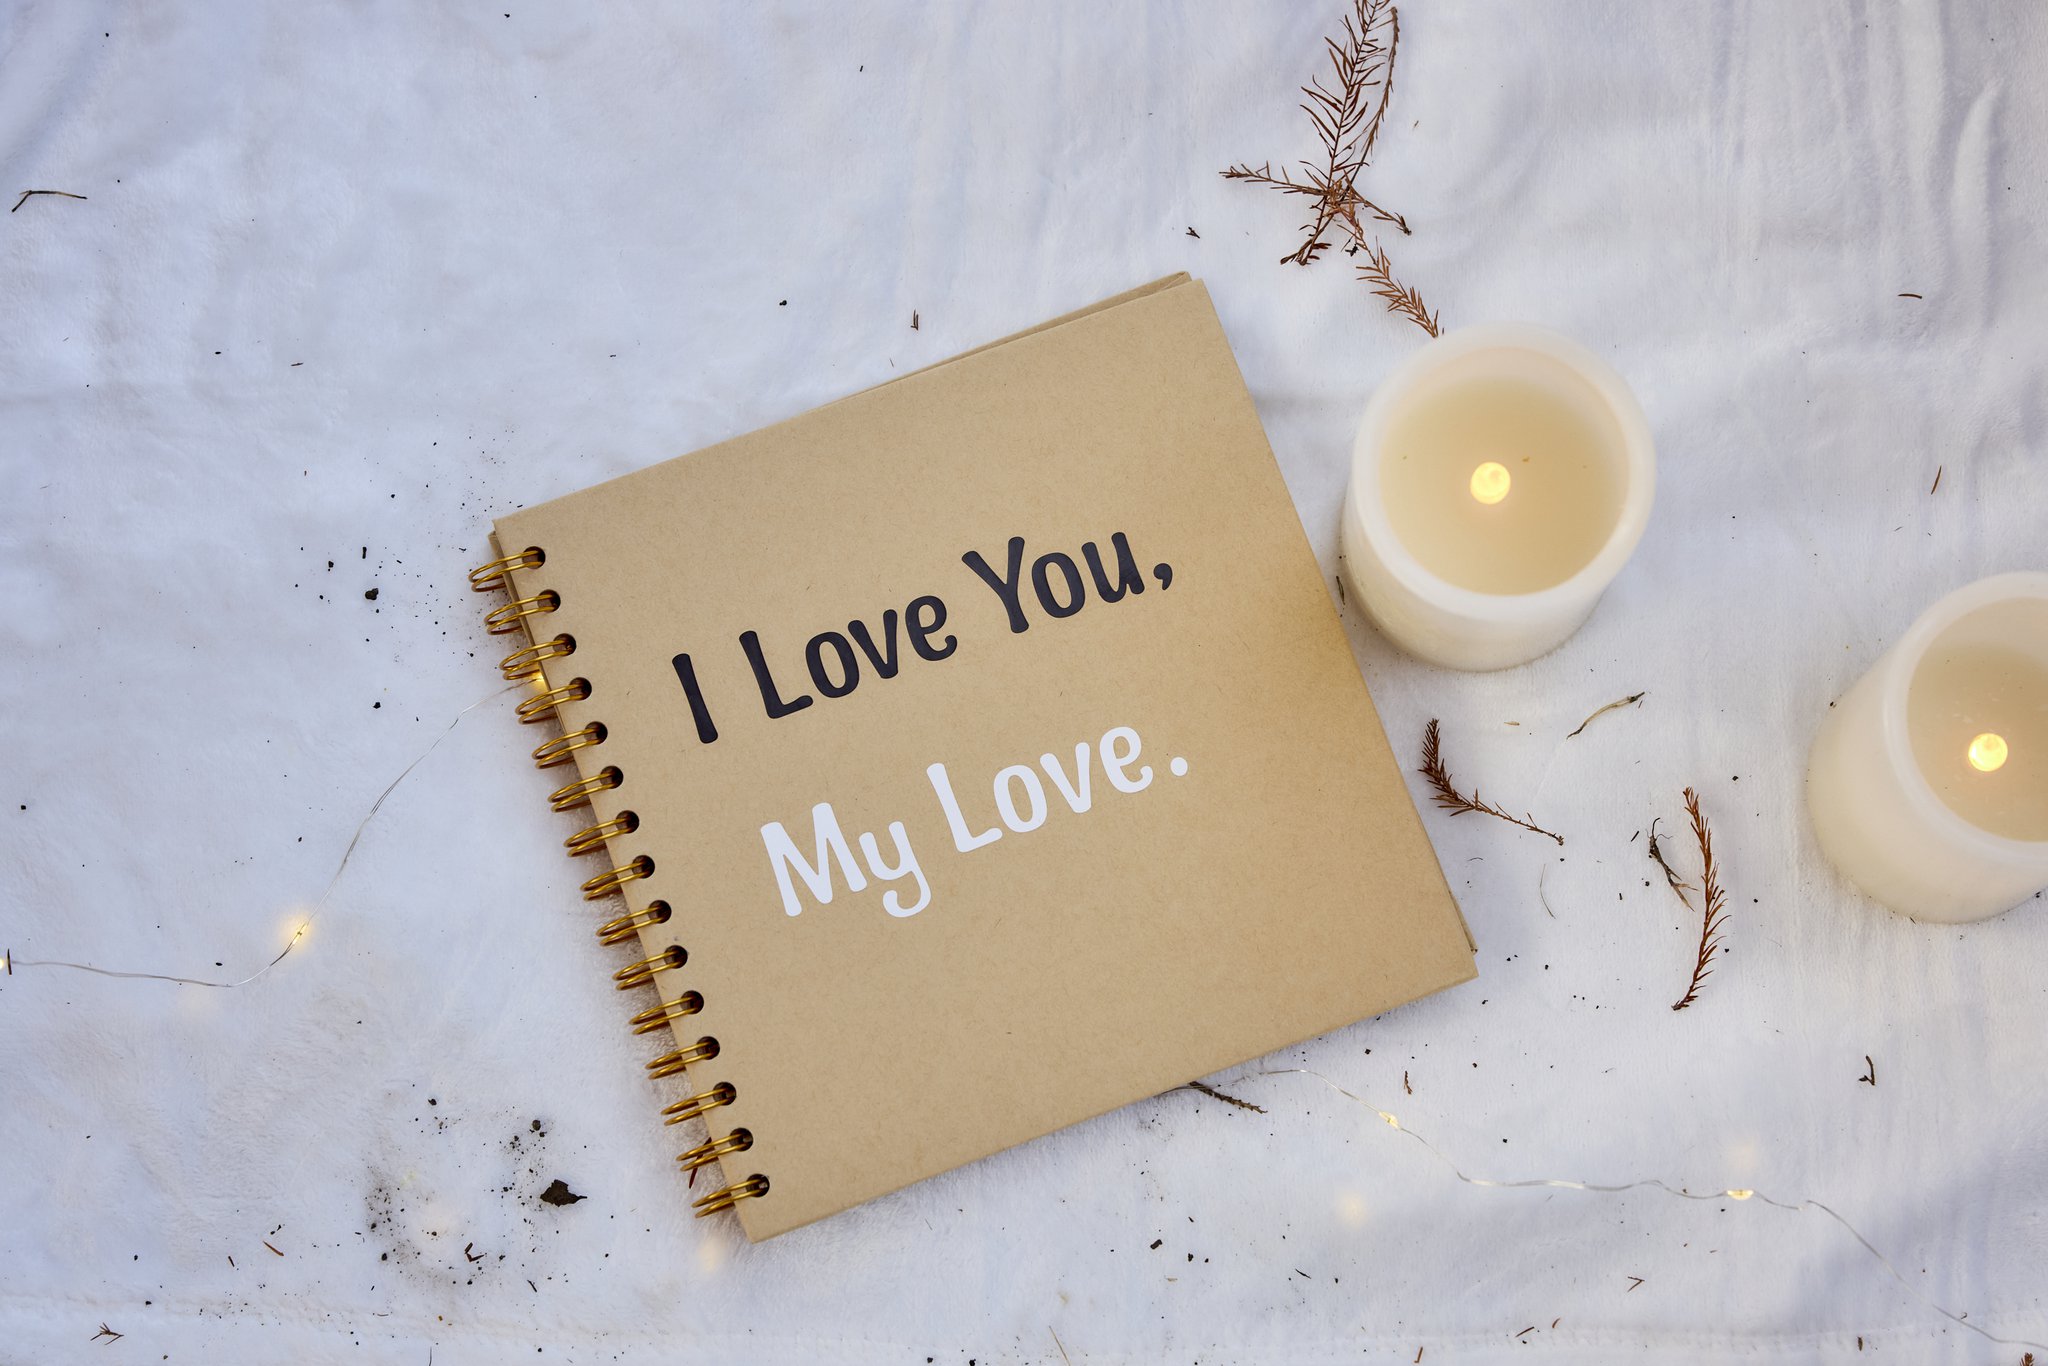 I Love You,
My Love.